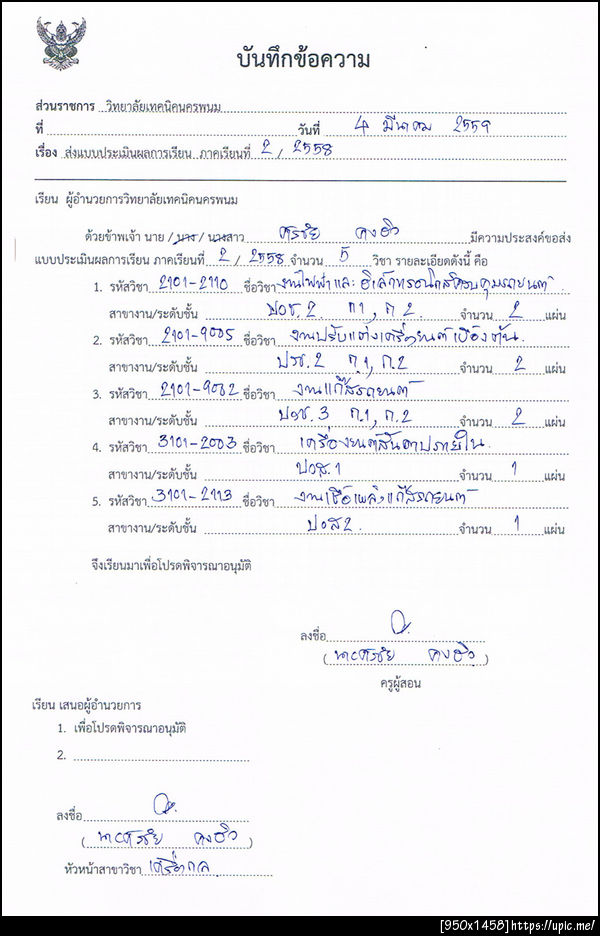 บันทึกข้อความ
ส่วนราชการ วิทยาลัยเทคนิคนครพนม
ที่ วันที่ 4 มีนาคม 2559
เรื่อง ส่งแบบประเมินผลการเรียน ภาคเรียนที่ 2 / 2558
เรียน ผู้อำนวยการวิทยาลัยเทคนิคนครพนม
ด้วยข้าพเจ้า นาย / นาง / นางสาว ศรชัย คงฮิว มีความประสงค์ขอส่ง
แบบประเมินผลการเรียน ภาคเรียนที่ 2 / 2558 จำนวน 5 วิชา รายละเอียดดังนี้ คือ
1. รหัสวิชา 2101-2110 ชื่อวิชา งานไฟฟ้าและอิเล็กทรอนิกส์ควบคุมรถยนต์
สาขางาน/ระดับชั้น ปวช.2 ก.1, ก.2 จำนวน 2 แผ่น
2. รหัสวิชา 2101-9005 ชื่อวิชา งานปรับแต่งเครื่องยนต์เบื้องต้น
สาขางาน/ระดับชั้น ปวช.2 ก.1, ก.2 จำนวน 2 แผ่น
3. รหัสวิชา 2101-9002 ชื่อวิชา งานแก๊สรถยนต์
สาขางาน/ระดับชั้น ปวช.3 ก.1, ก.2 จำนวน 2 แผ่น
4. รหัสวิชา 3101-2003 ชื่อวิชา เครื่องยนต์สันดาปภายใน
สาขางาน/ระดับชั้น ปวส.1 จำนวน 1 แผ่น
5. รหัสวิชา 3101-2113 ชื่อวิชา งานเชื้อเพลิงแก๊สรถยนต์
สาขางาน/ระดับชั้น ปวส2. จำนวน 1 แผ่น
จึงเรียนมาเพื่อโปรดพิจารณาอนุมัติ
ลงชื่อ
( นายศรชัย คงฮิว )
ครูผู้สอน
เรียน เสนอผู้อำนวยการ
1. เพื่อโปรดพิจารณาอนุมัติ
2.
ลงชื่อ
( นายศรชัย คงฮิว )
หัวหน้าสาขาวิชา เครื่องกล
[950x1458] https://upic.me/